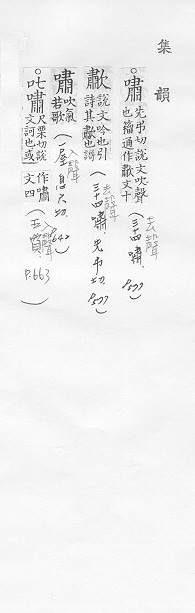 集韻
○嘯先弔切說文吹聲也籀通作歗文十(去聲 三十四嘯.P.577)
歗說文吟也引詩其歗也謌(去聲 三十四嘯.先弔切.P.577)
嘯吹气若歌(入聲 一屋息六切.P.642)
○叱嘯尺栗切說文訶也或作嘯文四(入聲 五質.P.663)